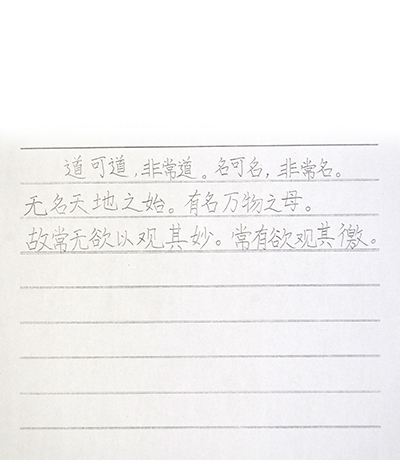 道可道，非常道。名可名，非常名。
无名天地之始。有名万物之母。
故常无欲以观其妙。常有欲观其徼。